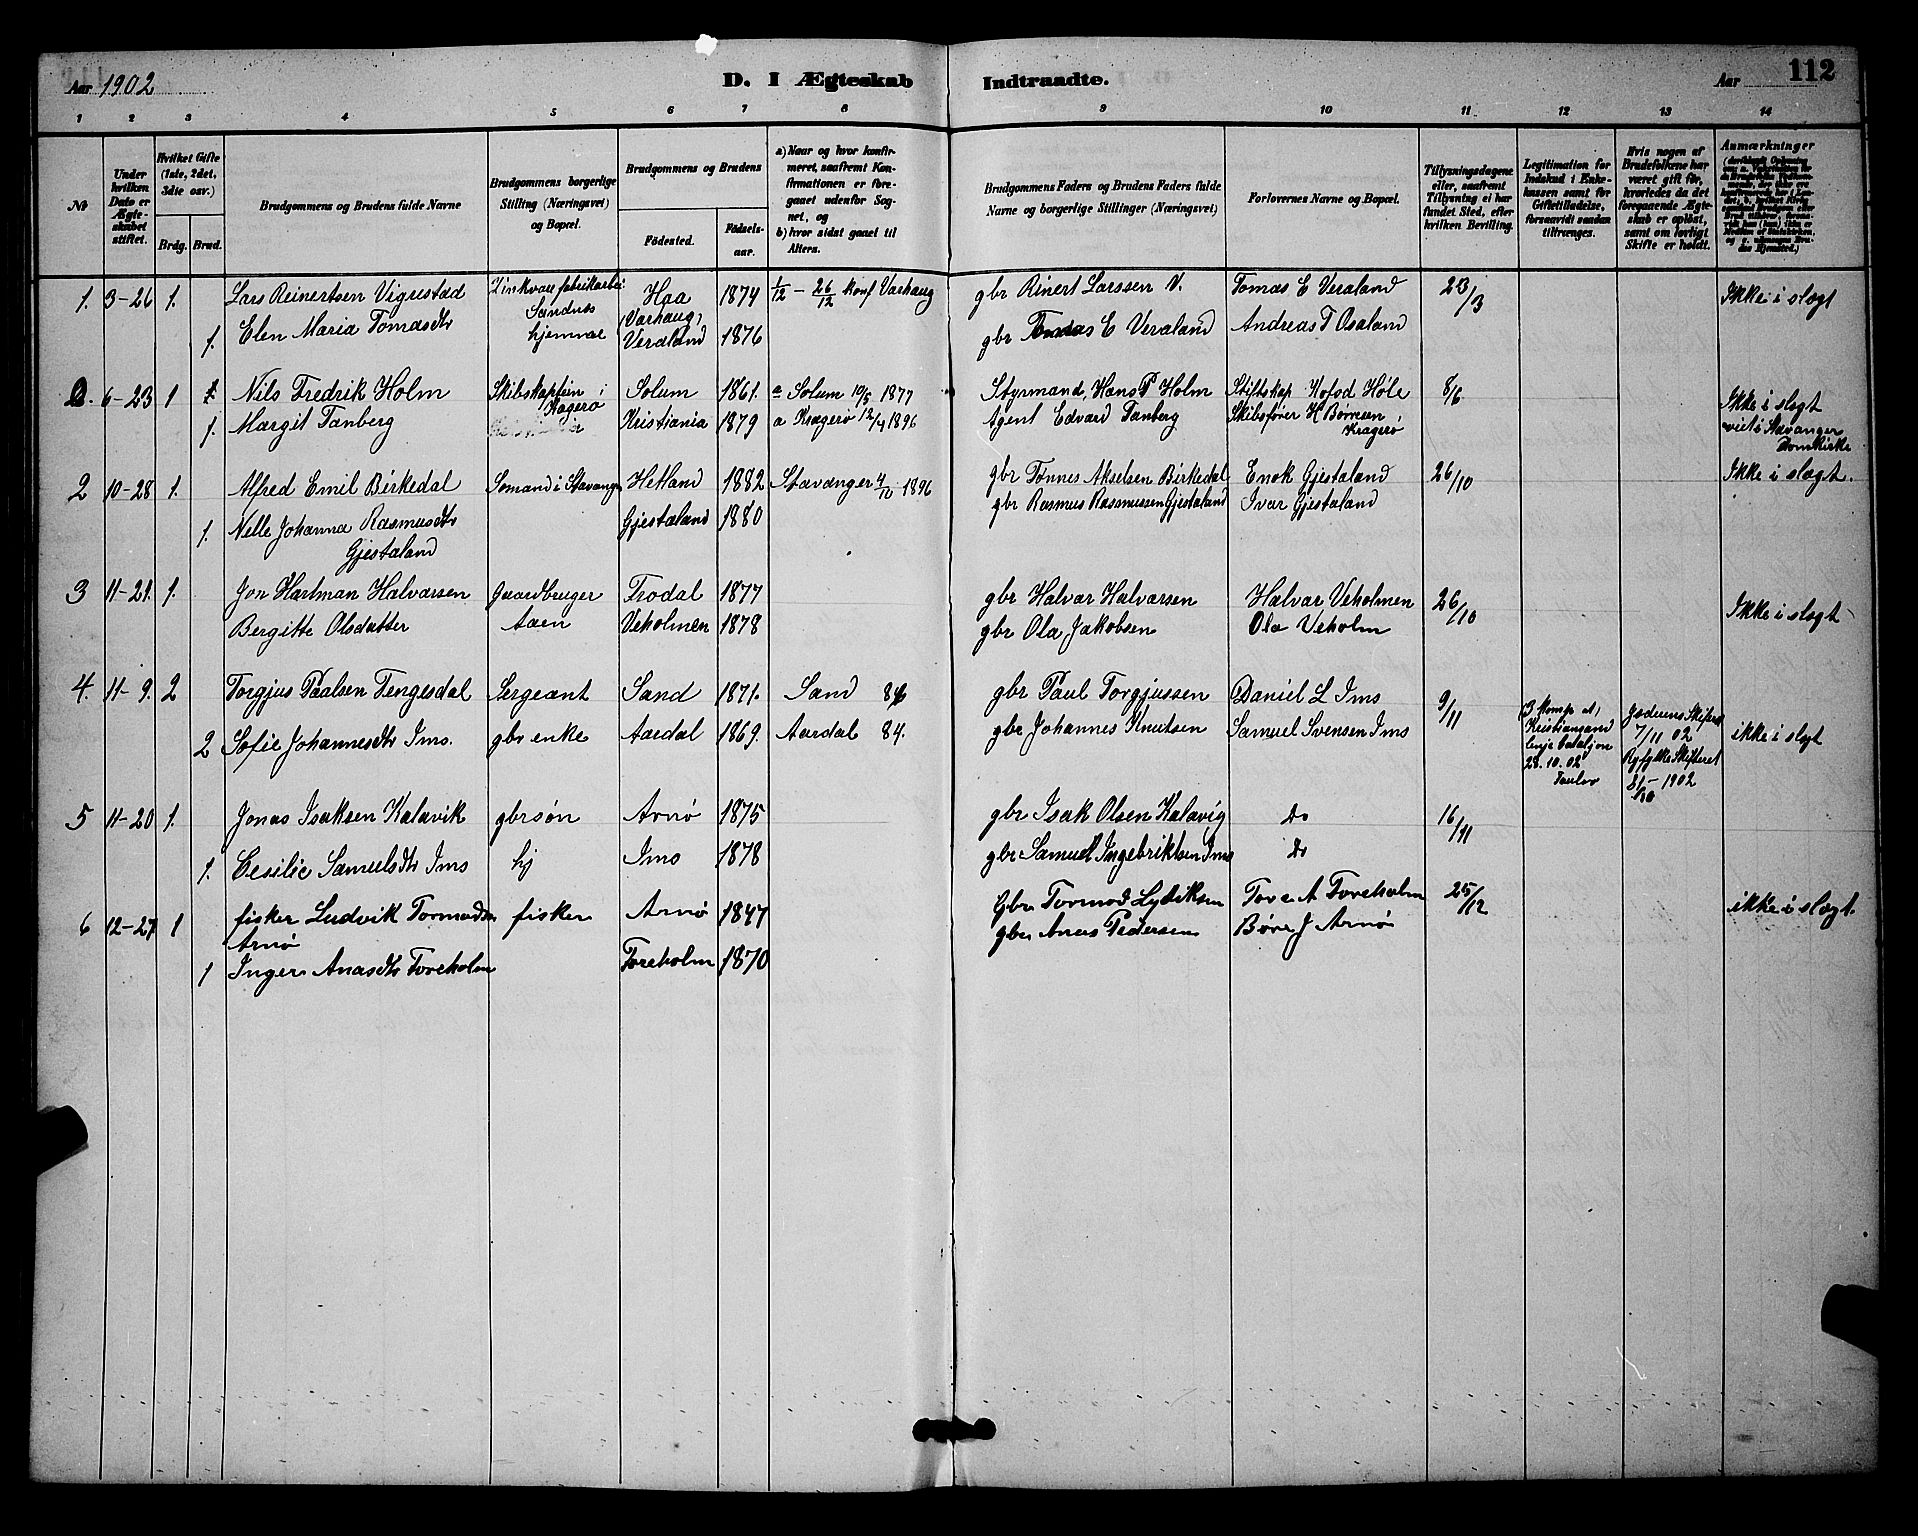 Aar 1902 D. I Ægteskab Indtraadte. Aar 112
1 2 3 4 5 6 7 8 9 10 11 12 13 14
No
Under hvilken Dato er Ægteskabet stiftet.
Hvilket Gifte (1ste, 2det, 3die osv.)
Brdg. Brud.
Brudgommens og Brudens fulde Navne
Brudgommens borgerlige Stilling (Næringsvei) og Bopæl.
Brudgommens og Brudens
Födested. Födsels-aar.
a) Naar og hvor konfirmeret, saafremt Konfirmationen er foregaaet udenfor Sognet, og
b) hvor sidst gaaet til Alters.
Brudgommens Faders og Brudens Faders fulde Navne og borgerlige Stillinger (Næringsvei)
Forlovernes Navne og Bopæl.
Tillysningsdagene eller, saafremt Tillysning ei har fundet Sted, efter hvilken Bevilling.
Legitimation for Indskud i Enkekassen samt for Giftetilladelse, forsaavidt saadan tiltrænges.
Hvis nogen af Brudefolkene har været gift för, hvorledes da det foregaaende Ægteskab er oplöst, samt om lovligt Skifte er holdt.
Anmærkninger
1. 3-26 1. Lars Reinertsen Vigrestad Zinkvarefabrikarbei Sandnes Haa (Varhaug) 1874 1/12 - 26/12 konf Varhaug gbr Rinert Larssen V. Tomas E Veraland 23/3 Ikke i slægt
1. Elen Maria Tomasdtr hjemme Veraland 1876 gbr Tomas E Veraland Andreas T Osaland
2. 6-23 1 Nils Fredrik Holm Skibskaptein i Kragerø Solum 1861. a Solum 10/5 1877 Styrmand, Hans P Holm Stiftskap Kofod Høle 8/6 Ikke i slægt
1. Margit Tanberg Kristiania 1879 a Kragerø 12/4 1896 Agent Edvard Tanberg Skibsfører H Borresen, Kragerø viet i Stavanger Domkirke
2 10-28 1. Alfred Emil Birkedal Sømand i Stavanger Hetland 1882 Stavanger 4/10 1896 gbr Tønnes Akselsen Birkedal Enok Gjestaland 26/10 Ikke i slægt.
1. Nelle Johanna Rasmusdtr Gjestaland Gjestaland 1880 gbr Rasmus Rasmussen Gjestaland Ivar Gjestaland
3 11-21. 1. Jon Hartman Halvarsen Gaardbruger Frodal 1877 gbr Halvar Halvarsen Halvar Veholmen 26/10 Ikke i slægt
Bergitte Olsdatter Aaen Veholmen 1878 gbr Ola Jakobsen Ola Veholm
4. 11-9. 2 Torgjus Paalsen Tengesdal Sergeant Sand 1871. Sand 86 gbr Paul Torgjussen Daniel L Ims 9/11 3 komp af Kristiansand linjebataljon 28.10.02 Jæderens Skifteret 7/11 02 Ryfylke Skifteret 8/10 - 1902
2 Sofie Johannesdtr Ims. gbr enke Aardal 1869. Aardal 84. gbr Johannes Knutsen Samuel Svensen Ims ikke i slægt
5 11-20 1. Jonas Isaksen Kalavik gbrsøn Arnø 1875 gbr Isak Olsen Kalavig Do 16/11
1. Cesilie Samuelsdtr Ims hj Ims 1878 gbr Samuel Ingebriktsen Ims Do
6 12-27 1 fisker Ludvik Tormodsen Arnø fisker Arnø 1847 Gbr Tormod Lydiksen Tore A Toreholm 25/12 ikke i slægt.
1 Inger Anasdtr Toreholm Toreholm 1870 gbr Anas Pedersen Børe J Arnø